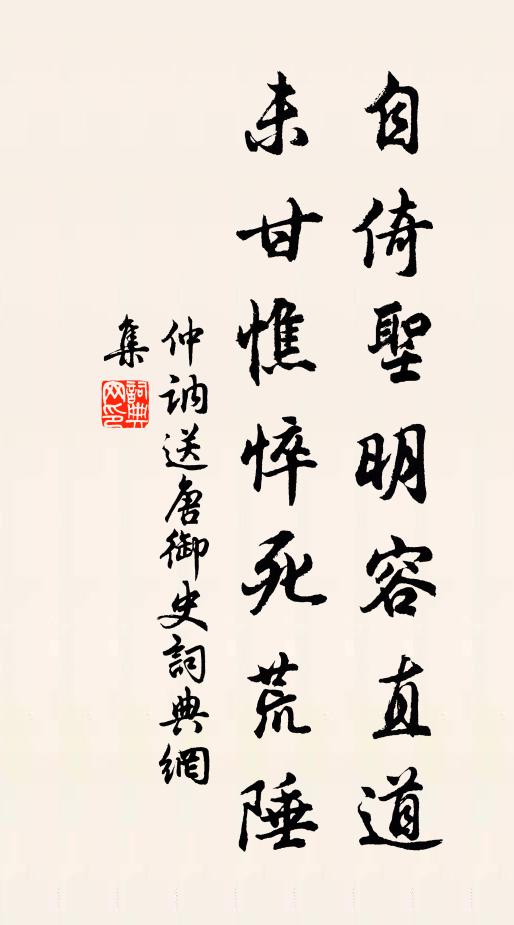 自倚聖明容直道
未甘憔悴死荒陲
仲訥送唐御史詞典網
集
詞典
网印